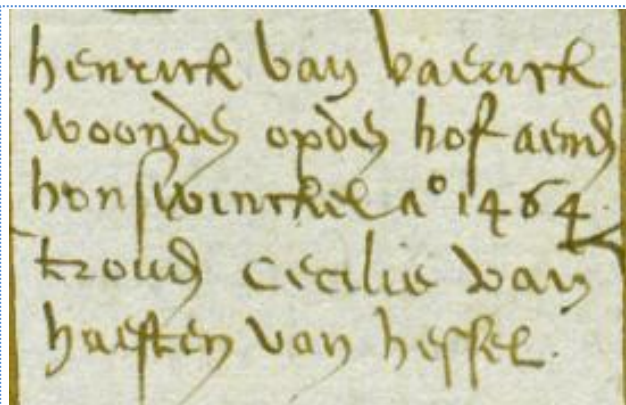 henrick van vaerick
woonde opden hof aend
honswinckel Ao 1464.
troud Cecilie van
haeften van hessel.